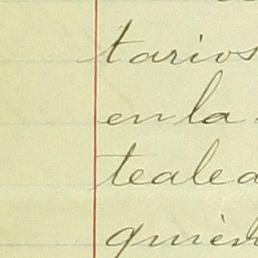 tarios
en la
tealea
quien